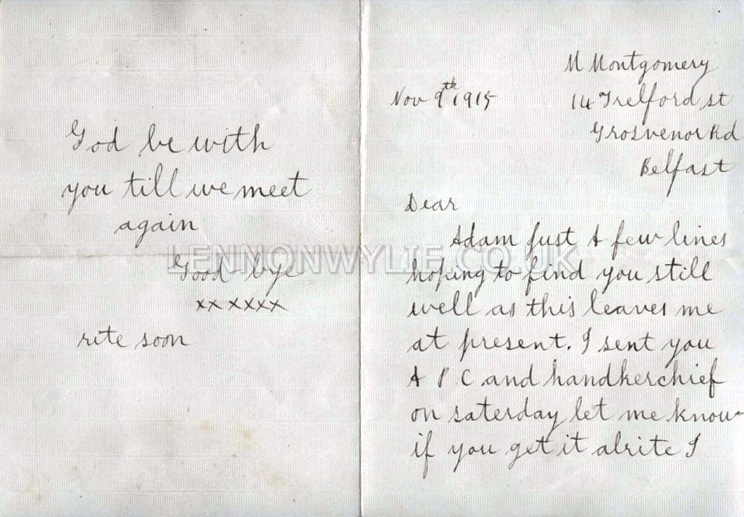 God be with
you till we meet
again
Good bye
xxxxxx
rite soon
M Montgomery
Nov 9th 1915
14 Telford st
Grosvenor Rd
Belfast
Dear
Adam just A few lines
hoping to find you still
well as this leaves me
at present. I sent you
A P C and handkerchief
on saterday let me know
if you get it alrite I
LENNONWYLIE.CO.UK